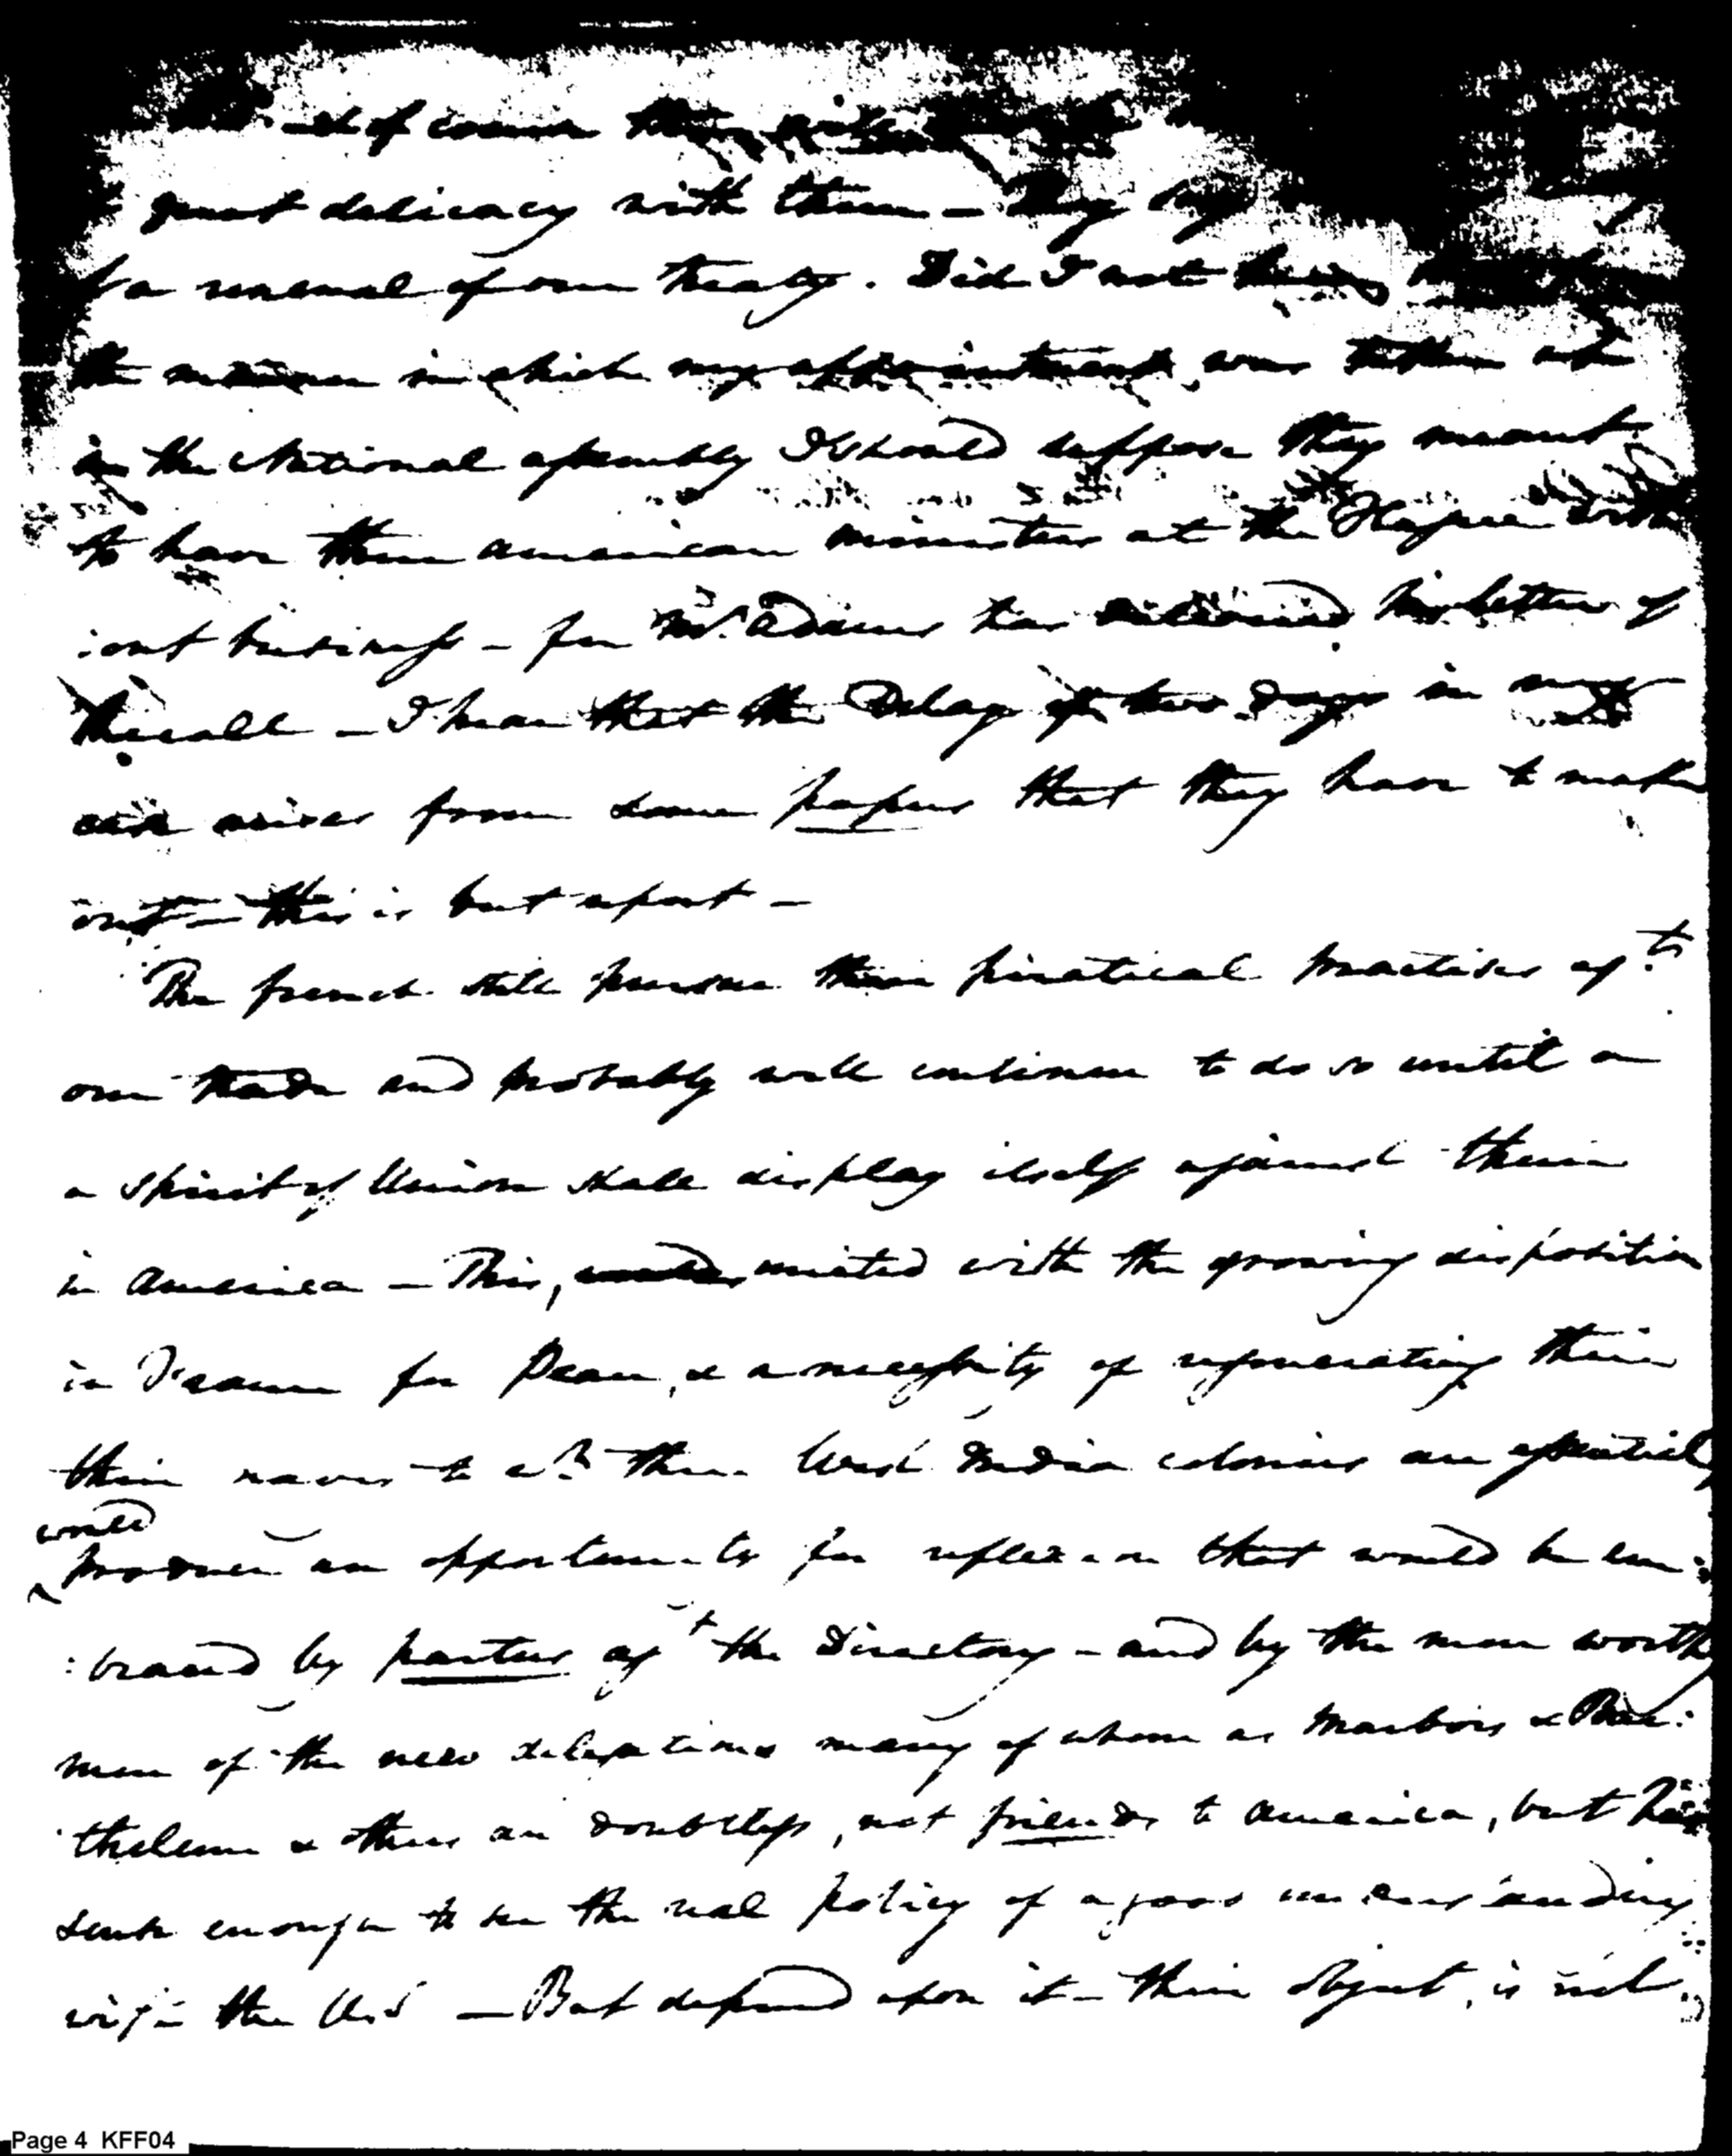 & of course
great delicacy with them — they
for a renewal of our treaty. Did I not know
the manner in which my appointment was taken
in the National assembly I should suppose they meant
to have three american ministers at the Hague with
:out business — for Mr. Adams has his letter of
Recall — I hear that the Delay of two days in my
arises from some papers that they have to make
out — this is but a part —
The french still pursue their piratical practises agt.
our trade and probably will continue to do so until a
a spirit of Union shall display itself against them
in America — This, united with the growing disposition
in France for Peace, & a necessity of regenerating their
their naves to wh. their West India colonies are essential,
would
produce an opportunity for reflexion that would be em:
:braced by parties agt the Directory — and by the more worthy
men of the new delegations many of whom as Marbois & Bar:
:thelemi & others are doubtless, not friends to America, but
sense enough to see the real policy of a good understanding
with the U.S — But depend upon it — their object, is not
Page 4 KFF04